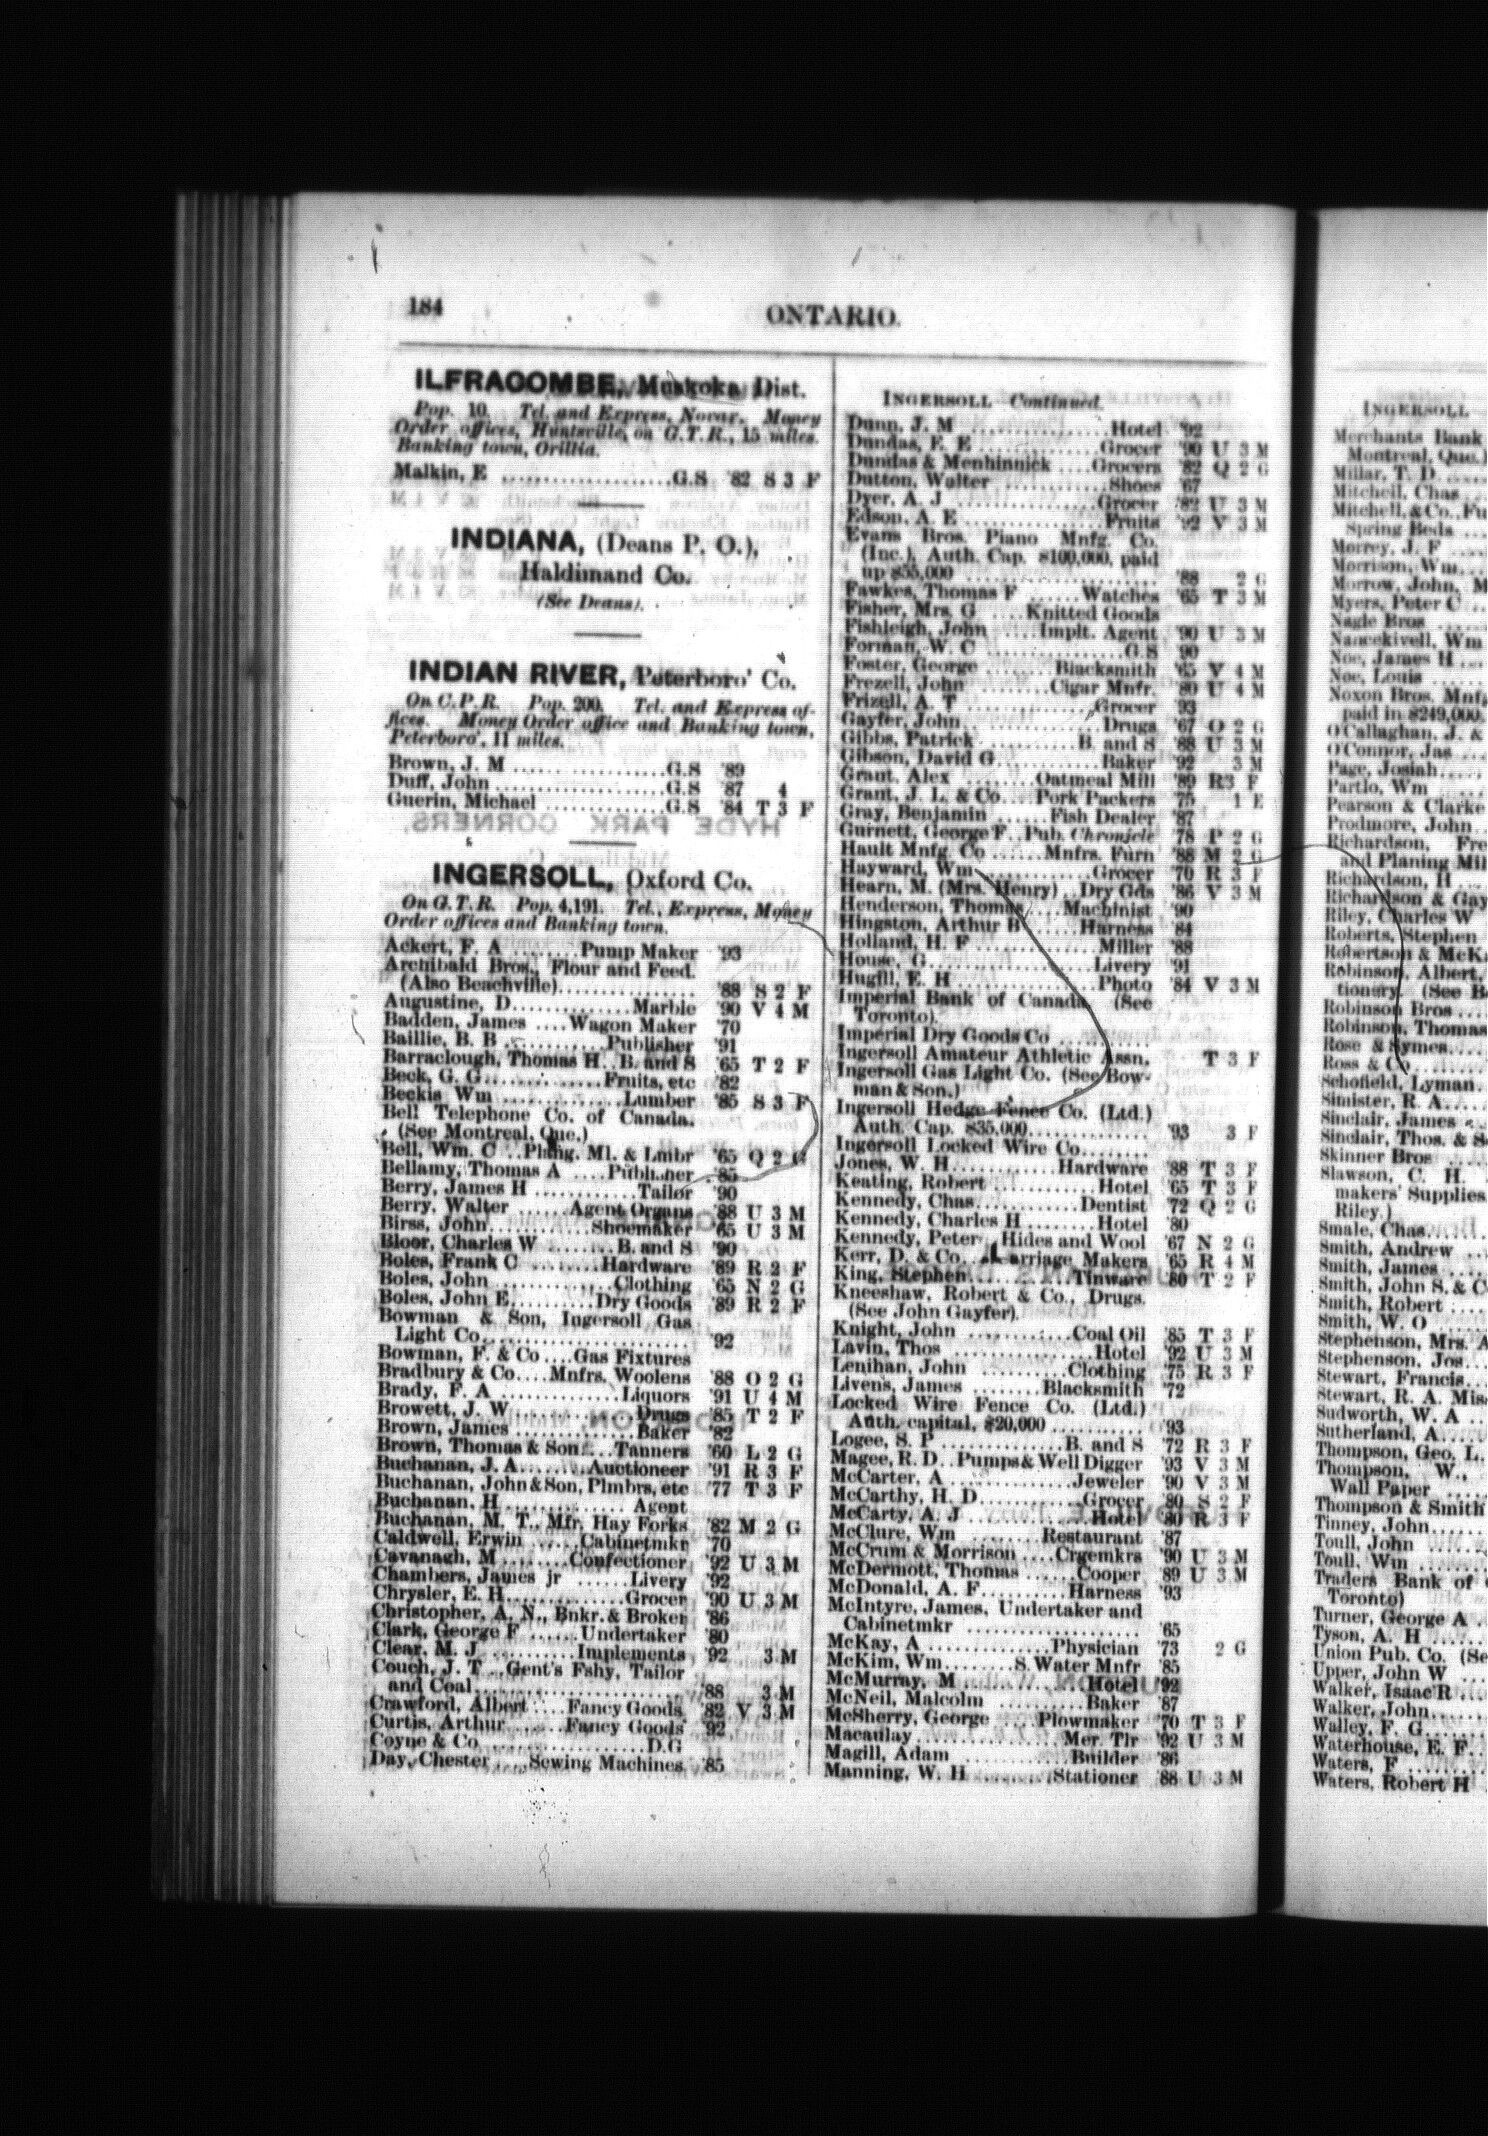 184
ONTARIO.
ILFRACOMBE, Muskoka Dist.
Pop. 10. Tel. and Express, Novar. Money
Order offices, Huntsville, on G.T.R., 15 miles.
Banking town, Orillia.
Malkin, E ....................G.S '82 S 3 F
INDIANA, (Deans P. O.),
Haldimand Co.
(See Deans).
INDIAN RIVER, Peterboro' Co.
On C.P.R. Pop. 200. Tel. and Express of-
fices. Money Order office and Banking town,
Peterboro', 11 miles.
Brown, J. M ....................G.S '89
Duff, John ....................G.S '87 4
Guerin, Michael .............G.S '84 T 3 F
INGERSOLL, Oxford Co.
On G.T.R. Pop. 4,191. Tel., Express, Money
Order offices and Banking town.
Ackert, F. A .......Pump Maker '93
Archibald Bros., Flour and Feed.
(Also Beachville)............... '88 S 2 F
Augustine, D.............Marble '90 V 4 M
Badden, James ....Wagon Maker '70
Baillie, B. B ...........Publisher '91
Barraclough, Thomas H..B. and S '65 T 2 F
Beck, G. G.............Fruits, etc '82
Beckis Wm .............Lumber '85 S 3 F
Bell Telephone Co. of Canada.
(See Montreal, Que.)
Bell, Wm. C ..Plang. Ml. & Lmbr '65 Q 2 G
Bellamy, Thomas A ....Publisher '85
Berry, James H ...........Tailor '90
Berry, Walter ......Agent Organs '88 U 3 M
Birss, John...........Shoemaker '65 U 3 M
Bloor, Charles W ........B. and S '90
Boles, Frank C ........Hardware '89 R 2 F
Boles, John .............Clothing '65 N 2 G
Boles, John E..........Dry Goods '89 R 2 F
Bowman & Son, Ingersoll Gas
Light Co...................... '92
Bowman, F. & Co ....Gas Fixtures
Bradbury & Co....Mnfrs. Woolens '88 O 2 G
Brady, F. A .............Liquors '91 U 4 M
Browett, J. W ............Drugs '85 T 2 F
Brown, James .............Baker '82
Brown, Thomas & Son....Tanners '60 L 2 G
Buchanan, J. A........Auctioneer '91 R 3 F
Buchanan, John & Son, Plmbrs, etc '77 T 3 F
Buchanan, H ............. Agent
Buchanan, M. T., Mfr. Hay Forks '82 M 2 G
Caldwell, Erwin .....Cabinetmkr '70
Cavanagh, M .......Confectioner '92 U 3 M
Chambers, James jr ......Livery '92
Chrysler, E. H.............Grocer '90 U 3 M
Christopher, A. N., Bnkr. & Broker '86
Clark, George F ......Undertaker '80
Clear, M. J ..........Implements '92 3 M
Couch, J. T ..Gent's Fshy, Tailor
and Coal....................... '88 3 M
Crawford, Albert ....Fancy Goods '82 V 3 M
Curtis, Arthur ......Fancy Goods '92
Coyne & Co.................D.G
Day, Chester ....Sewing Machines '85
INGERSOLL Continued.
Dunn, J. M ................Hotel '92
Dundas, E. E .............Grocer '90 U 3 M
Dundas & Menhinnick ....Grocers '82 Q 2 G
Dutton, Walter ...........Shoes '67
Dyer, A. J ...............Grocer '82 U 3 M
Edson, A. E...............Fruits '92 V 3 M
Evans Bros. Piano Mnfg. Co.
(Inc.), Auth. Cap. $100,000, paid
up $55,000 ..................... '88 2 G
Fawkes, Thomas F ......Watches '65 T 3 M
Fisher, Mrs. G ....Knitted Goods
Fishleigh, John .....Implt. Agent '90 U 3 M
Forman, W. C ..............G.S '90
Foster, George .......Blacksmith '65 V 4 M
Frezell, John .......Cigar Mnfr. '80 U 4 M
Frizell, A. T .............Grocer '93
Gayfer, John..............Drugs '67 O 2 G
Gibbs, Patrick .........B. and S '88 U 3 M
Gibson, David G...........Baker '92 3 M
Grant, Alex ........Oatmeal Mill '89 R3 F
Grant, J. L. & Co....Pork Packers '75 1 E
Gray, Benjamin ......Fish Dealer '87
Gurnett, George F..Pub. Chronicle '78 P 2 G
Hault Mnfg. Co ......Mnfrs. Furn '88 M 2 G
Hayward, Wm ............Grocer '70 R 3 F
Hearn, M. (Mrs. Henry)..Dry Gds '86 V 3 M
Henderson, Thomas....Machinist '90
Hingston, Arthur B ......Harness '84
Holland, H. F .............Miller '88
House, G..................Livery '91
Hugill, E. H ...............Photo '84 V 3 M
Imperial Bank of Canada. (See
Toronto).
Imperial Dry Goods Co ..........
Ingersoll Amateur Athletic Assn. T 3 F
Ingersoll Gas Light Co. (See Bow-
man & Son.)
Ingersoll Hedge Fence Co. (Ltd.)
Auth. Cap. $35,000.............. '93 3 F
Ingersoll Locked Wire Co........
Jones, W. H............Hardware '88 T 3 F
Keating, Robert ...........Hotel '65 T 3 F
Kennedy, Chas............Dentist '72 Q 2 G
Kennedy, Charles H........Hotel '80
Kennedy, Peter Hides and Wool '67 N 2 G
Kerr, D. & Co. ..Carriage Makers '65 R 4 M
King, Stephen............Tinware '80 T 2 F
Kneeshaw, Robert & Co., Drugs.
(See John Gayfer).
Knight, John ...........Coal Oil '85 T 3 F
Lavin, Thos ...............Hotel '92 U 3 M
Lenihan, John ..........Clothing '75 R 3 F
Livens, James ........Blacksmith '72
Locked Wire Fence Co. (Ltd.)
Auth. capital, $20,000 .......... '93
Logee, S. P .............B. and S '72 R 3 F
Magee, R. D..Pumps & Well Digger '93 V 3 M
McCarter, A ..............Jeweler '90 V 3 M
McCarthy, H. D............Grocer '80 S 2 F
McCarty, A. J ..............Hotel '80 R 3 F
McClure, Wm ........Restaurant '87
McCrum & Morrison ....Crgemkrs '90 U 3 M
McDermott, Thomas ......Cooper '89 U 3 M
McDonald, A. F..........Harness '93
McIntyre, James, Undertaker and
Cabinetmkr .................... '65
McKay, A .............Physician '73 2 G
McKim, Wm........S. Water Mnfr '85
McMurray, M ..............Hotel '92
McNeil, Malcolm ..........Baker '87
McSherry, George .....Plowmaker '70 T 3 F
Macaulay................Mer. Tlr '92 U 3 M
Magill, Adam ............Builder '86
Manning, W. H .........Stationer '88 U 3 M
INGERSOLL
Merchants Bank
Montreal, Que.)
Millar, T. D.
Mitchell, Chas
Mitchell, & Co., Fu
Spring Beds
Morrey, J. F
Morrison, Wm
Morrow, John, M
Myers, Peter C
Nagle Bros
Nancekivell, Wm
Noe, James H
Noe, Louis
Noxon Bros. Mnfg
paid in $249,000.
O'Callaghan, J. &
O'Connor, Jas
Page, Josiah
Partlo, Wm
Pearson & Clarke
Prodmore, John
Richardson, Fre
and Planing Mil
Richardson, H
Richardson & Gay
Riley, Charles W
Roberts, Stephen
Robertson & McKa
Robinson, Albert,
tionery. (See Be
Robinson Bros
Robinson, Thomas
Rose & Symes
Ross & Co
Schofield, Lyman
Simister, R. A
Sinclair, James
Sinclair, Thos. & So
Skinner Bros
Slawson, C. H.
makers' Supplies.
Riley.)
Smale, Chas
Smith, Andrew
Smith, James
Smith, John S. & C
Smith, Robert
Smith, W. O
Stephenson, Mrs. A
Stephenson, Jos
Stewart, Francis
Stewart, R. A. Mis
Sudworth, W. A
Sutherland, A
Thompson, Geo. L.
Thompson, W.,
Wall Paper
Thompson & Smith
Tinney, John
Toull, John
Toull, Wm
Traders Bank of
Toronto)
Turner, George A
Tyson, A. H
Union Pub. Co. (Se
Upper, John W
Walker, Isaac R
Walker, John
Walley, F. G
Waterhouse, E. F
Waters, F
Waters, Robert H